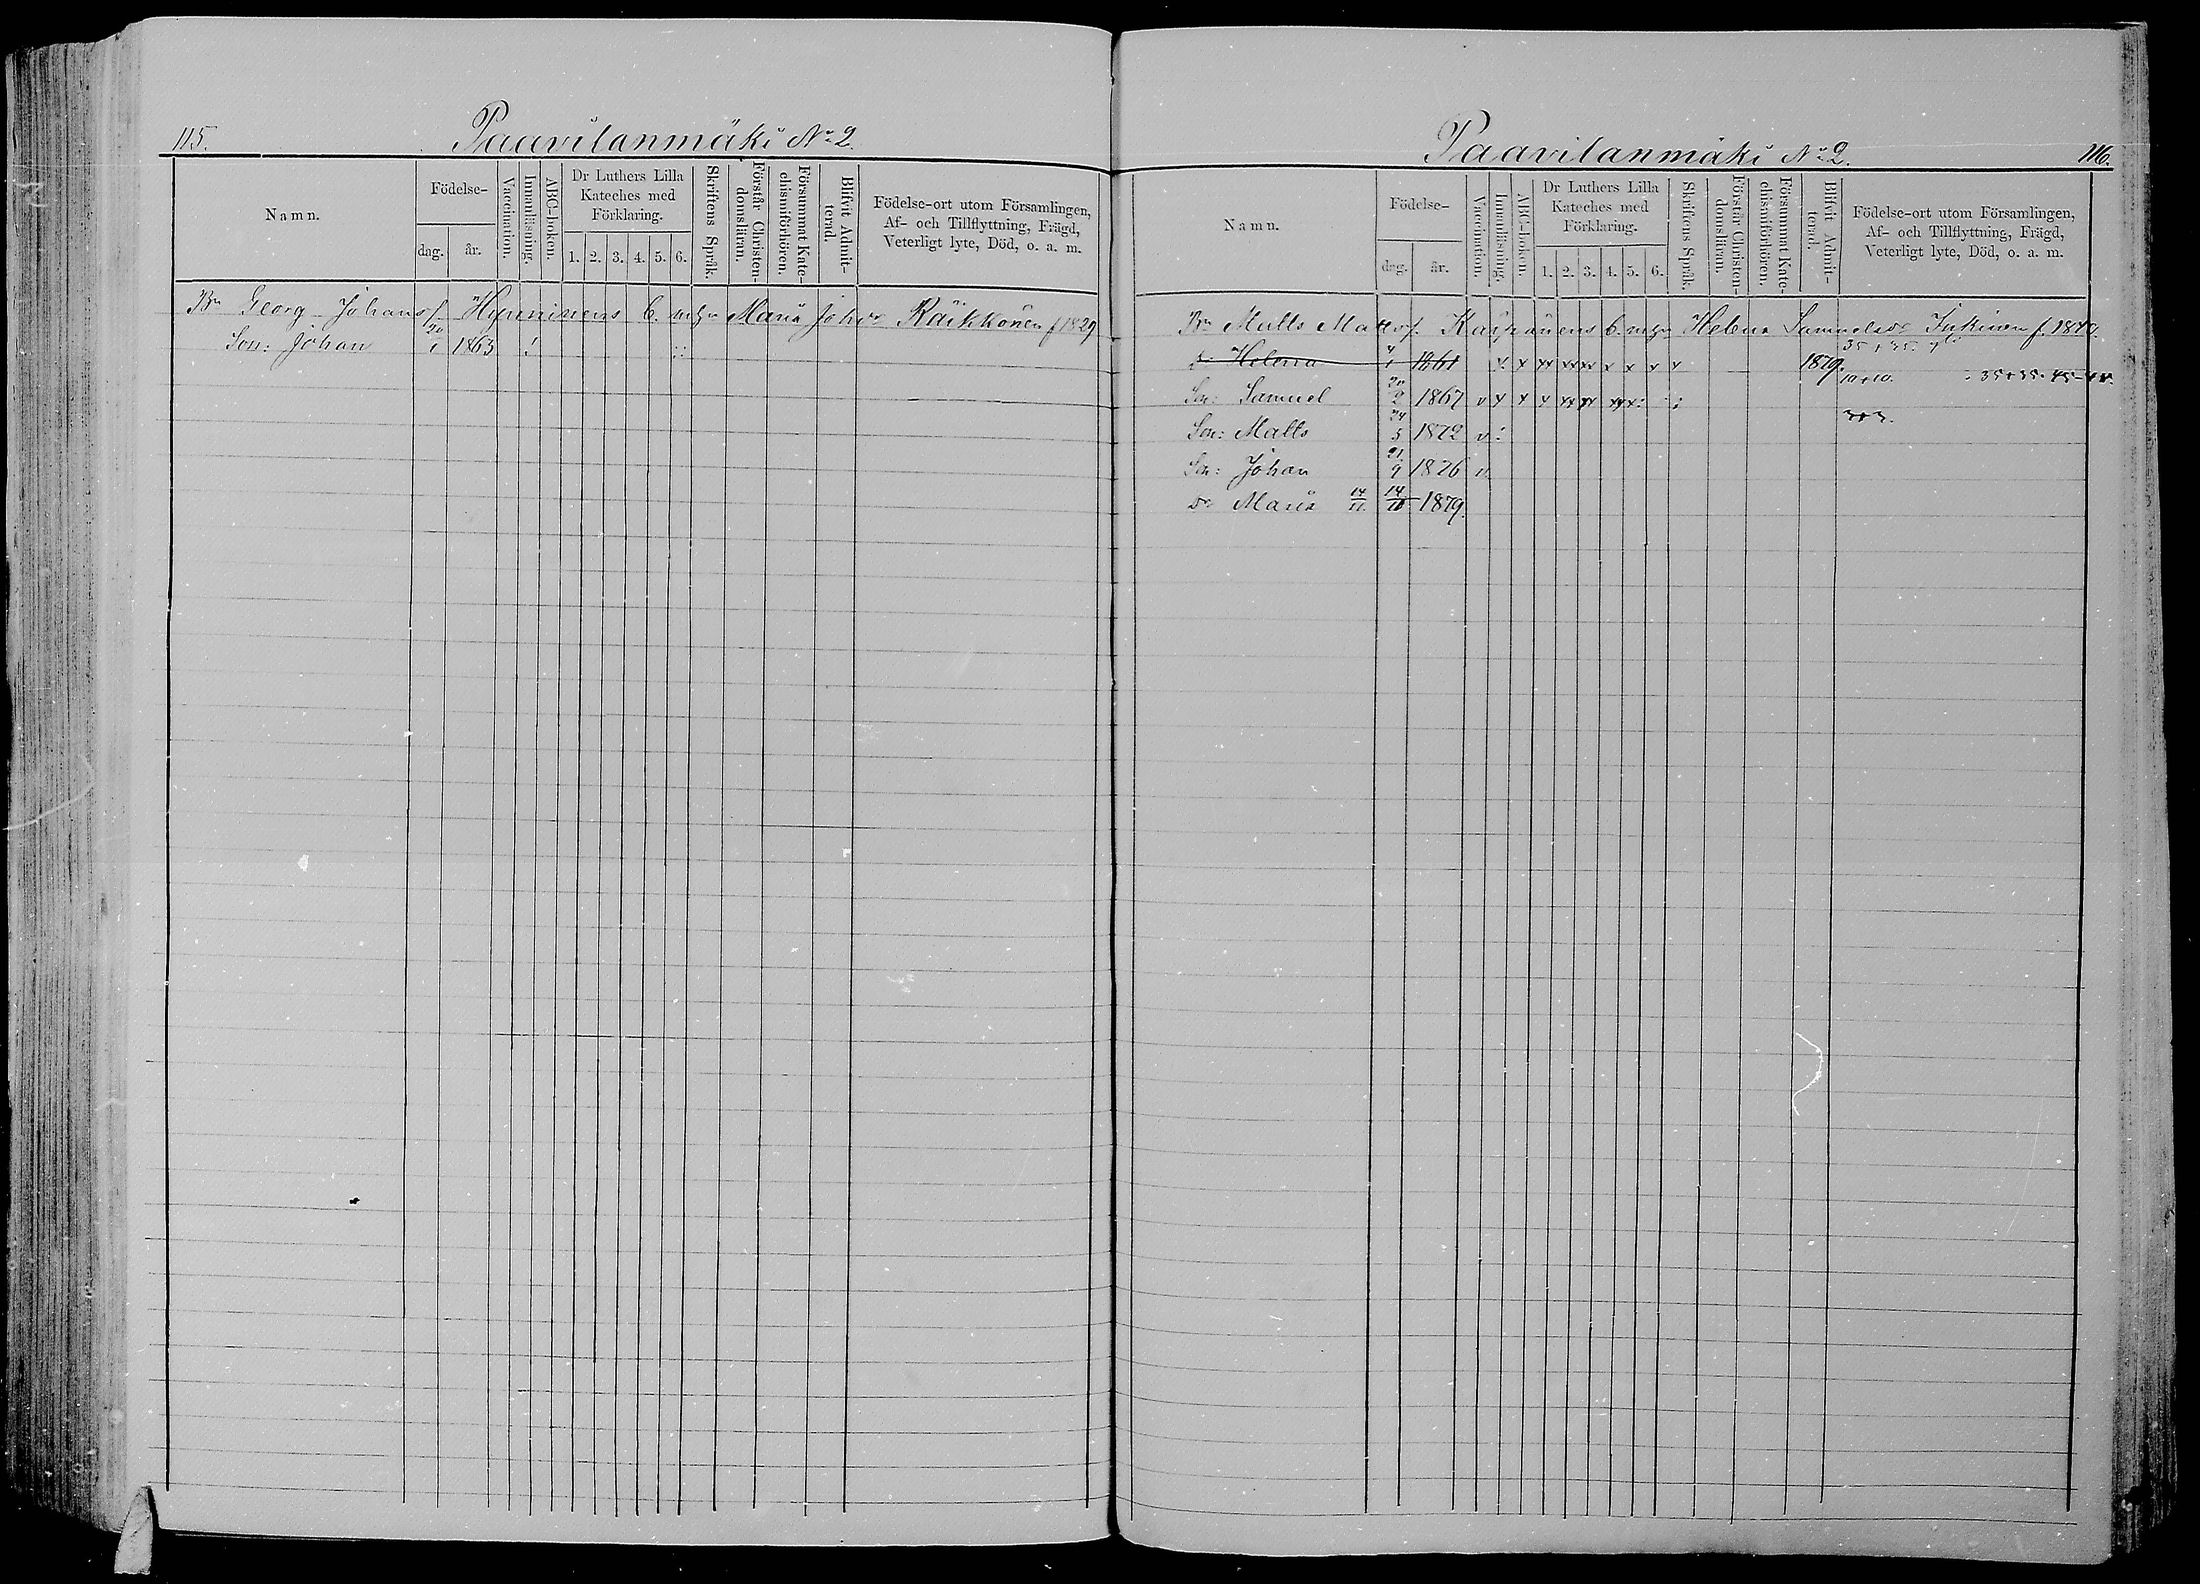 115.
Paavilanmäki No 2.
Namn.
Födelse-
dag.
år.
Vaccination.
Innanläsning.
ABC-boken.
Dr Luthers Lilla
Kateches med
Förklaring.
1. 2. 3. 4. 5. 6.
Skriftens Språk.
Förstår Christen-
domsläran.
Försummat Kate-
chismiförhören.
Blifvit Admit-
terad.
Födelse-ort utom Församlingen,
Af- och Tillflyttning, Frägd,
Veterligt lyte, Död, o. a. m.
Bn Georg Johans f. Hyninens b. m hu Maria Johdr Räikkönen f 1829
Son: Johan 20/1 1863
Paavilanmäki No 2.
116.
Namn.
Födelse-
dag.
år.
Vaccination.
Innanläsning.
ABC-boken.
Dr Luthers Lilla
Kateches med
Förklaring.
1. 2. 3. 4. 5. 6.
Skriftens Språk.
Förstår Christen-
domsläran.
Försummat Kate-
chismiförhören.
Blifvit Admit-
terad.
Födelse-ort utom Församlingen,
Af- och Tillflyttning, Frägd,
Veterligt lyte, Död, o. a. m.
Bn Matts Matts f. b. m hu Helena Samuelsdr Inkinen
Dr Helena 1861 v. x x xx xxx x x x x x 1879.
10+10. 35+35. 45-45.
Son: Samuel 20/2 1867 v x x x xx xx xx:
3+3.
Son: Matts 24/5 1872 v:
Son: Johan 21/9 1876 v.
Dr Maria 14/11 14/10 1879.